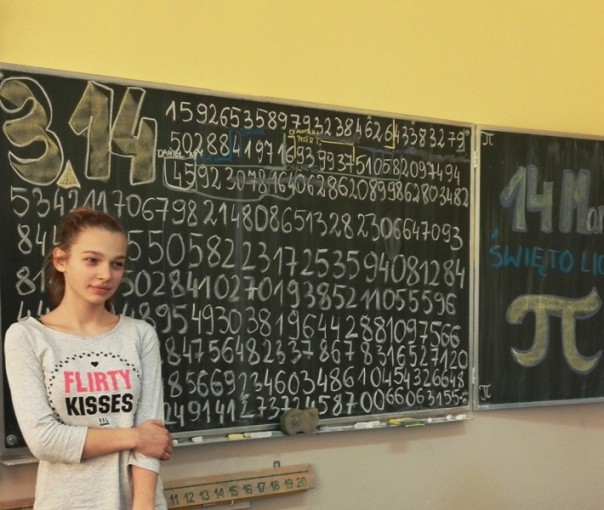 3,14
1592653589793238462643383279
50288419716939937510582097494
DANIEL
459230781640628620899862803482
5342117067982148086513282306647093
844 550582231725359408 1284
81 284102701938521105 5596
44 895493038196442881097566
847564823378678316527120
85669234603486104543266 48
249141273724587006606315 5
14 Mar
ŚWIĘTO LIC
π
π
π
FLIRTY
KISSES
11 12 13 14 15 16 17 18 19 20